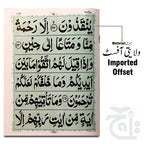 يُنْقَذُوْنَ اِلَّا رَحْمَةً
مِّنَّا وَمَتَاعًا اِلٰى حِيْنٍ
وَاِذَا قِيْلَ لَهُمُ اتَّقُوْا مَا بَيْنَ
اَيْدِيْكُمْ وَمَا خَلْفَكُمْ لَعَلَّكُمْ
تُرْحَمُوْنَ وَمَا تَاْتِيْهِمْ مِّنْ
اٰيَةٍ مِّنْ اٰيٰتِ رَبِّهِمْ اِلَّا
Material
ولایتی آفسٹ
Imported
Offset